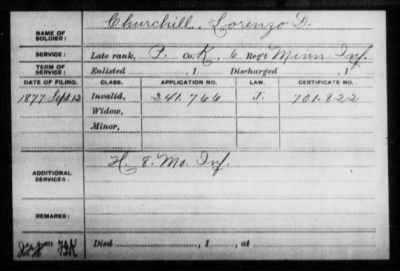 NAME OF SOLDIER: Churchill, Lorenzo D.
SERVICE: Late rank, P. Co. K, 6 Reg't Minn Inf.
TERM OF SERVICE: Enlisted , 1 Discharged , 1
DATE OF FILING. CLASS. APPLICATION NO. LAW. CERTIFICATE NO.
1877 Sept 12 Invalid, 241.766 J. 701.822
Widow,
Minor,
ADDITIONAL SERVICES: H. 8. Mo. Inf.
REMARKS:
Died , 1 , at